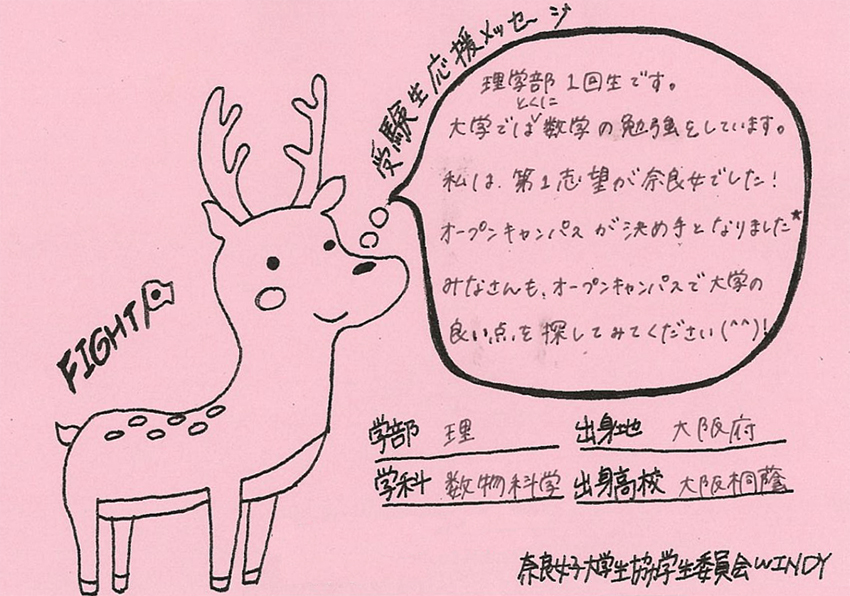 受験生応援メッセージ
理学部1回生です。
とくに
大学では数学の勉強をしています。
私は、第1志望が奈良女でした!
オープンキャンパスが決め手となりました★
みなさんも、オープンキャンパスで大学の
良い点を探してみてください(^^)!
FIGHT
学部 理
出身地 大阪府
学科 数物科学
出身高校 大阪桐蔭
奈良女子大学生協学生委員会WINDY